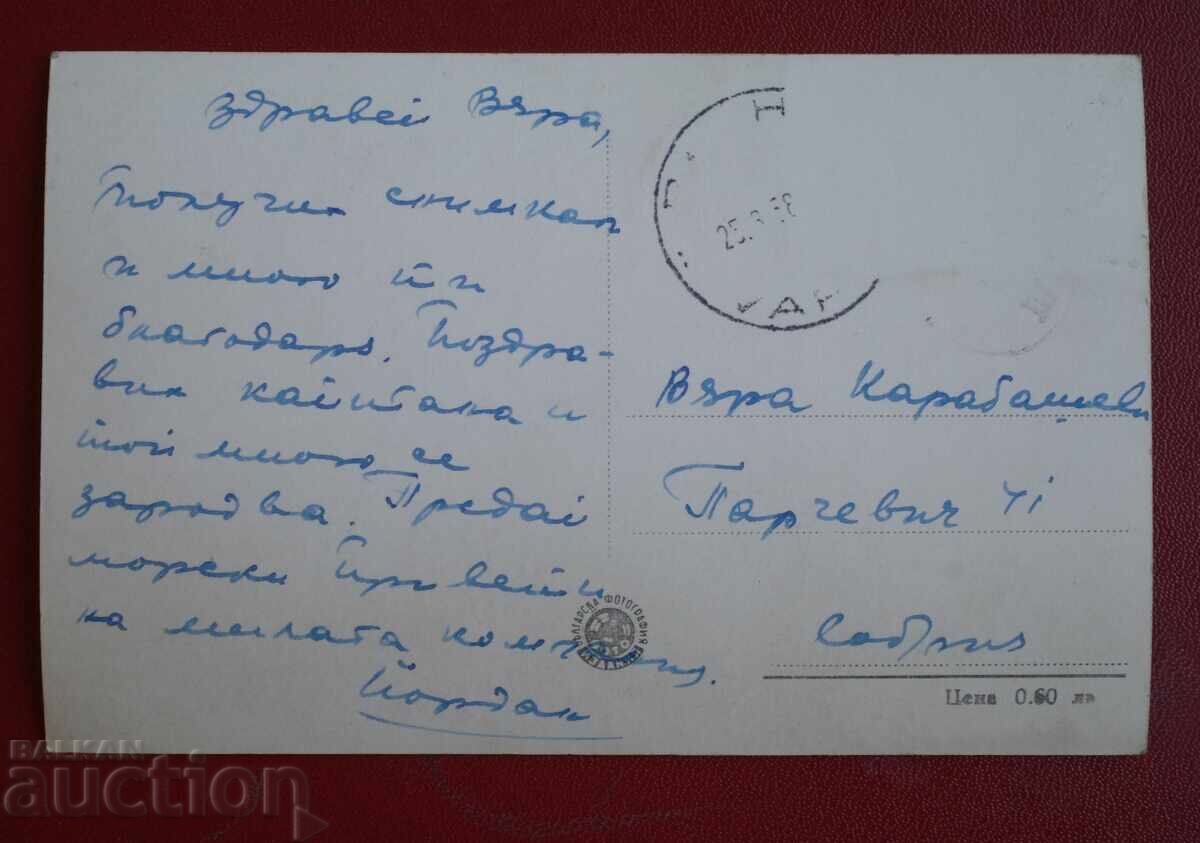 Здравей Вяра,
Получих снимкап
и много ти
благодаря. Поздра-
вих капитана и
той много се
зарадва. Предай
морски привети
на милата компания.
Йордан
25. 58
VAR
Вяра Карабашева
Парчевич 41
София
БЪЛГАРСКА ФОТОГРАФИЯ
Цена 0.60 лв
BALKAN
auction